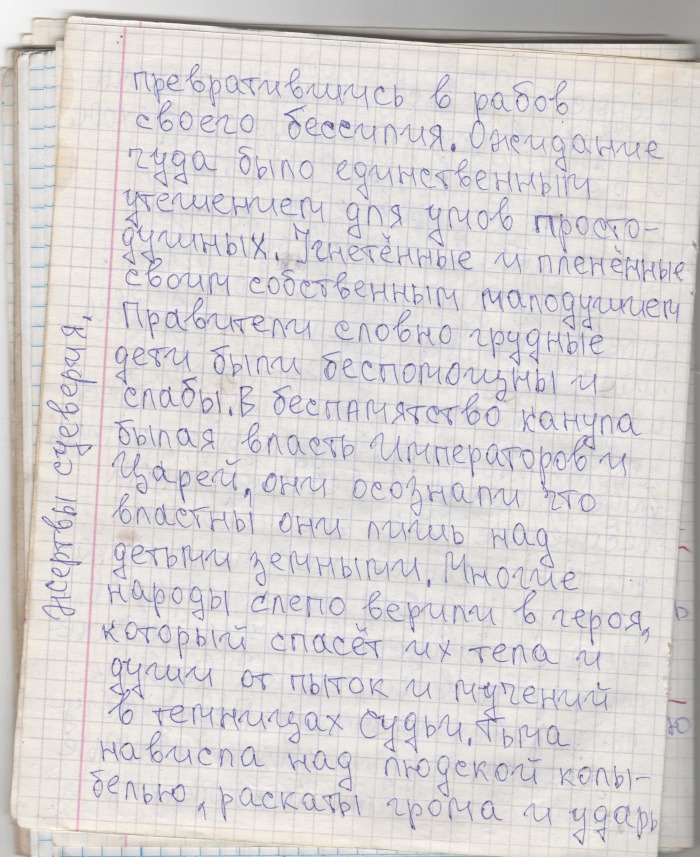 превратившись в рабов
своего бессилия. Ожидание
чуда было единственным
утешением для умов просто-
душных. Угнетённые и пленённые
своим собственным малодушием
Правители словно грудные
дети были беспомощны и
слабы. В беспамятство канула
былая власть Императоров и
Царей, они осознали что
властны они лишь над
детьми земными. Многие
народы слепо верили в героя,
который спасёт их тела и
души от пыток и мучений
в темницах судьи. Тьма
нависла над людской колы-
белью, раскаты грома и ударь
Жертвы суеверия.